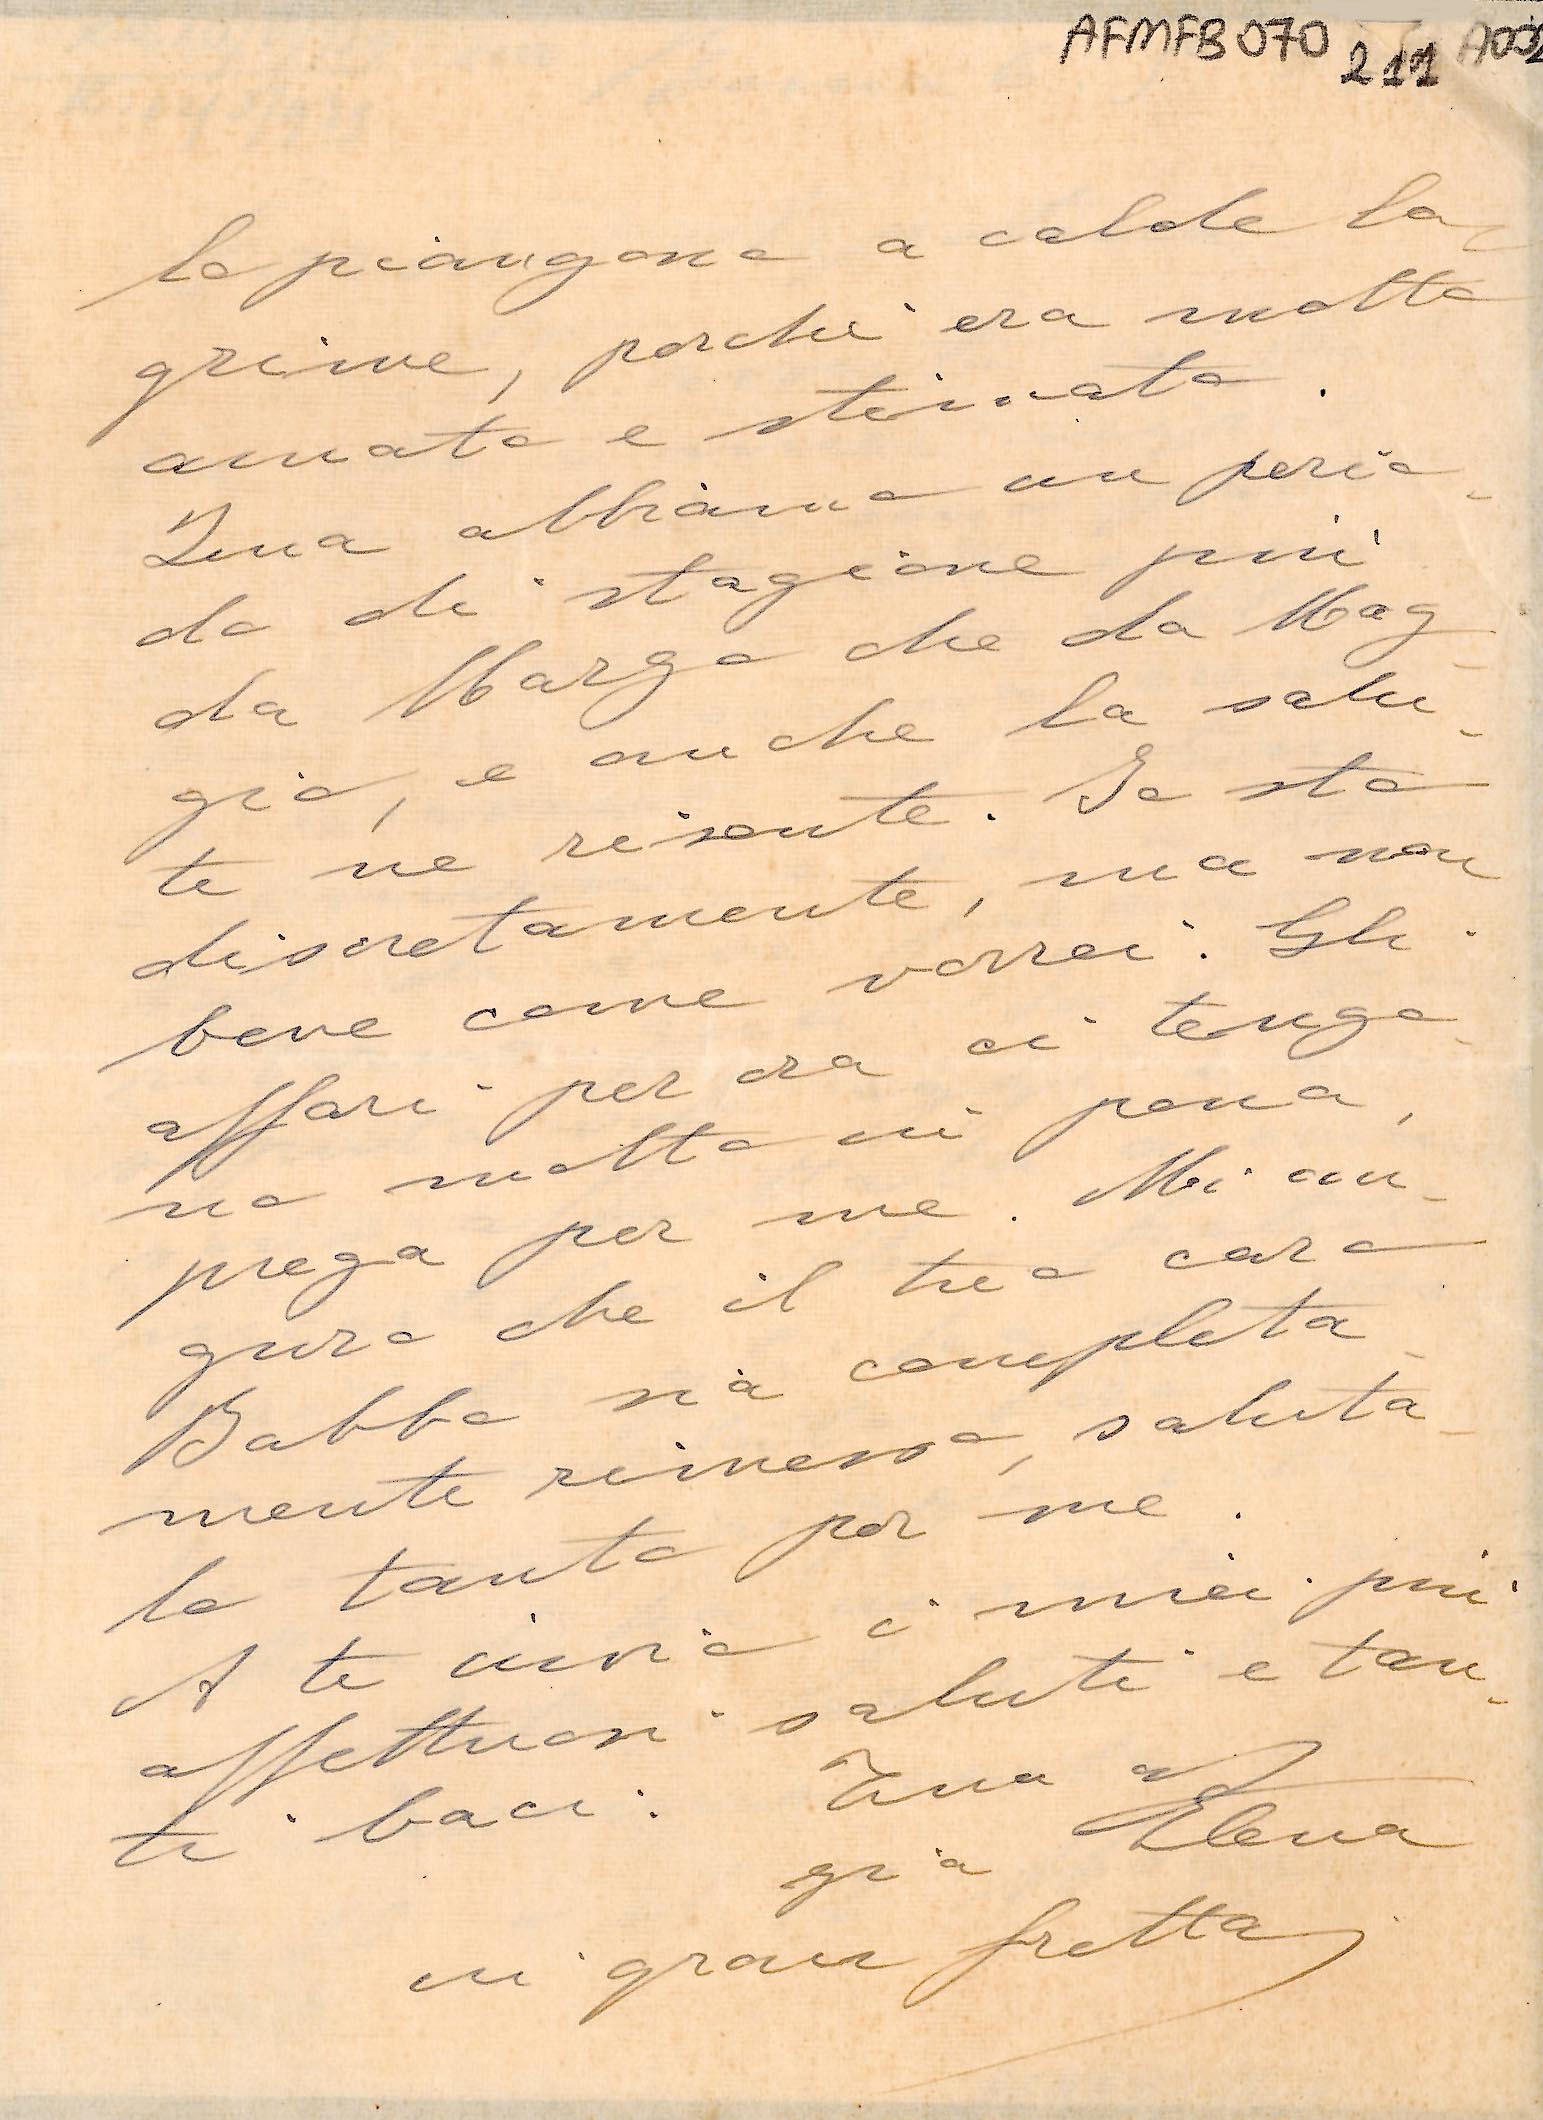 AFMFB070 211 A032
lo piangono a calde la-
grime, perchè era molto
amato e stimato.
Qua abbiamo un perio-
do di stagione più
da Marzo che da Mag-
gio, e anche la salu-
te ne risente. Io sto
discretamente, ma non
bene come vorrei. Gli
affari per ora ci tengo-
no molto in pena,
prega per me. Mi au-
guro che il tuo caro
Babbo sia completa-
mente rimesso, saluta-
lo tanto per me.
A te invio i miei più
affettuosi saluti e tan-
ti baci. Tua
Elena
in gran fretta